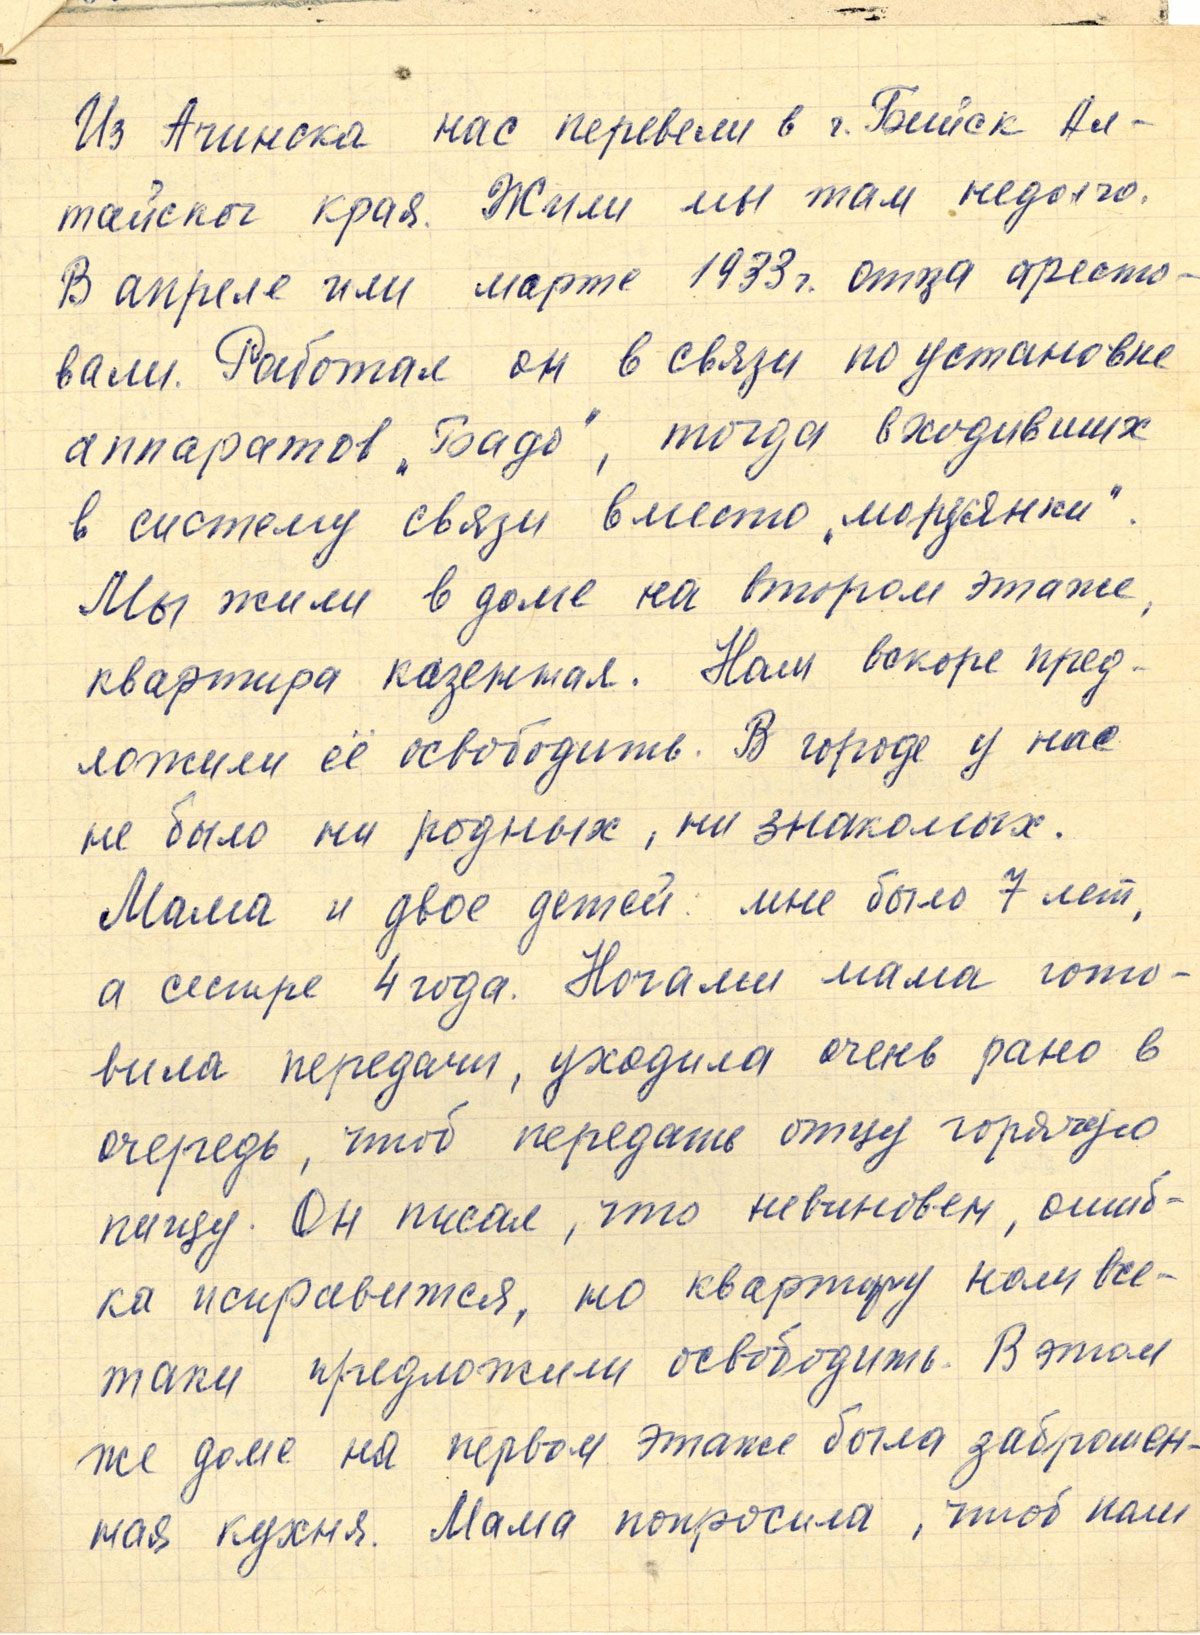 Из Ачинска нас перевели в г. Бийск Ал-
тайског края. Жили мы там недолго.
В апреле или марте 1933 г. отца аресто-
вали. Работал он в связи по установке
аппаратов „Бадо", тогда входивших
в систему связи вместо „морзянки".
Мы жили в доме на втором этаже,
квартира казенная. Нам вскоре пред-
ложили её освободить. В городе у нас
не было ни родных, ни знакомых.
Мама и двое детей: мне было 7 лет,
а сестре 4 года. Ночами мама гото-
вила передачи, уходила очень рано в
очередь, чтоб передать отцу горячую
пищу. Он писал, что невиновен, ошиб-
ка исправится, но квартиру нам все-
таки предложили освободить. В этом
же доме на первом этаже была заброшен-
ная кухня. Мама попросила, чтоб нам